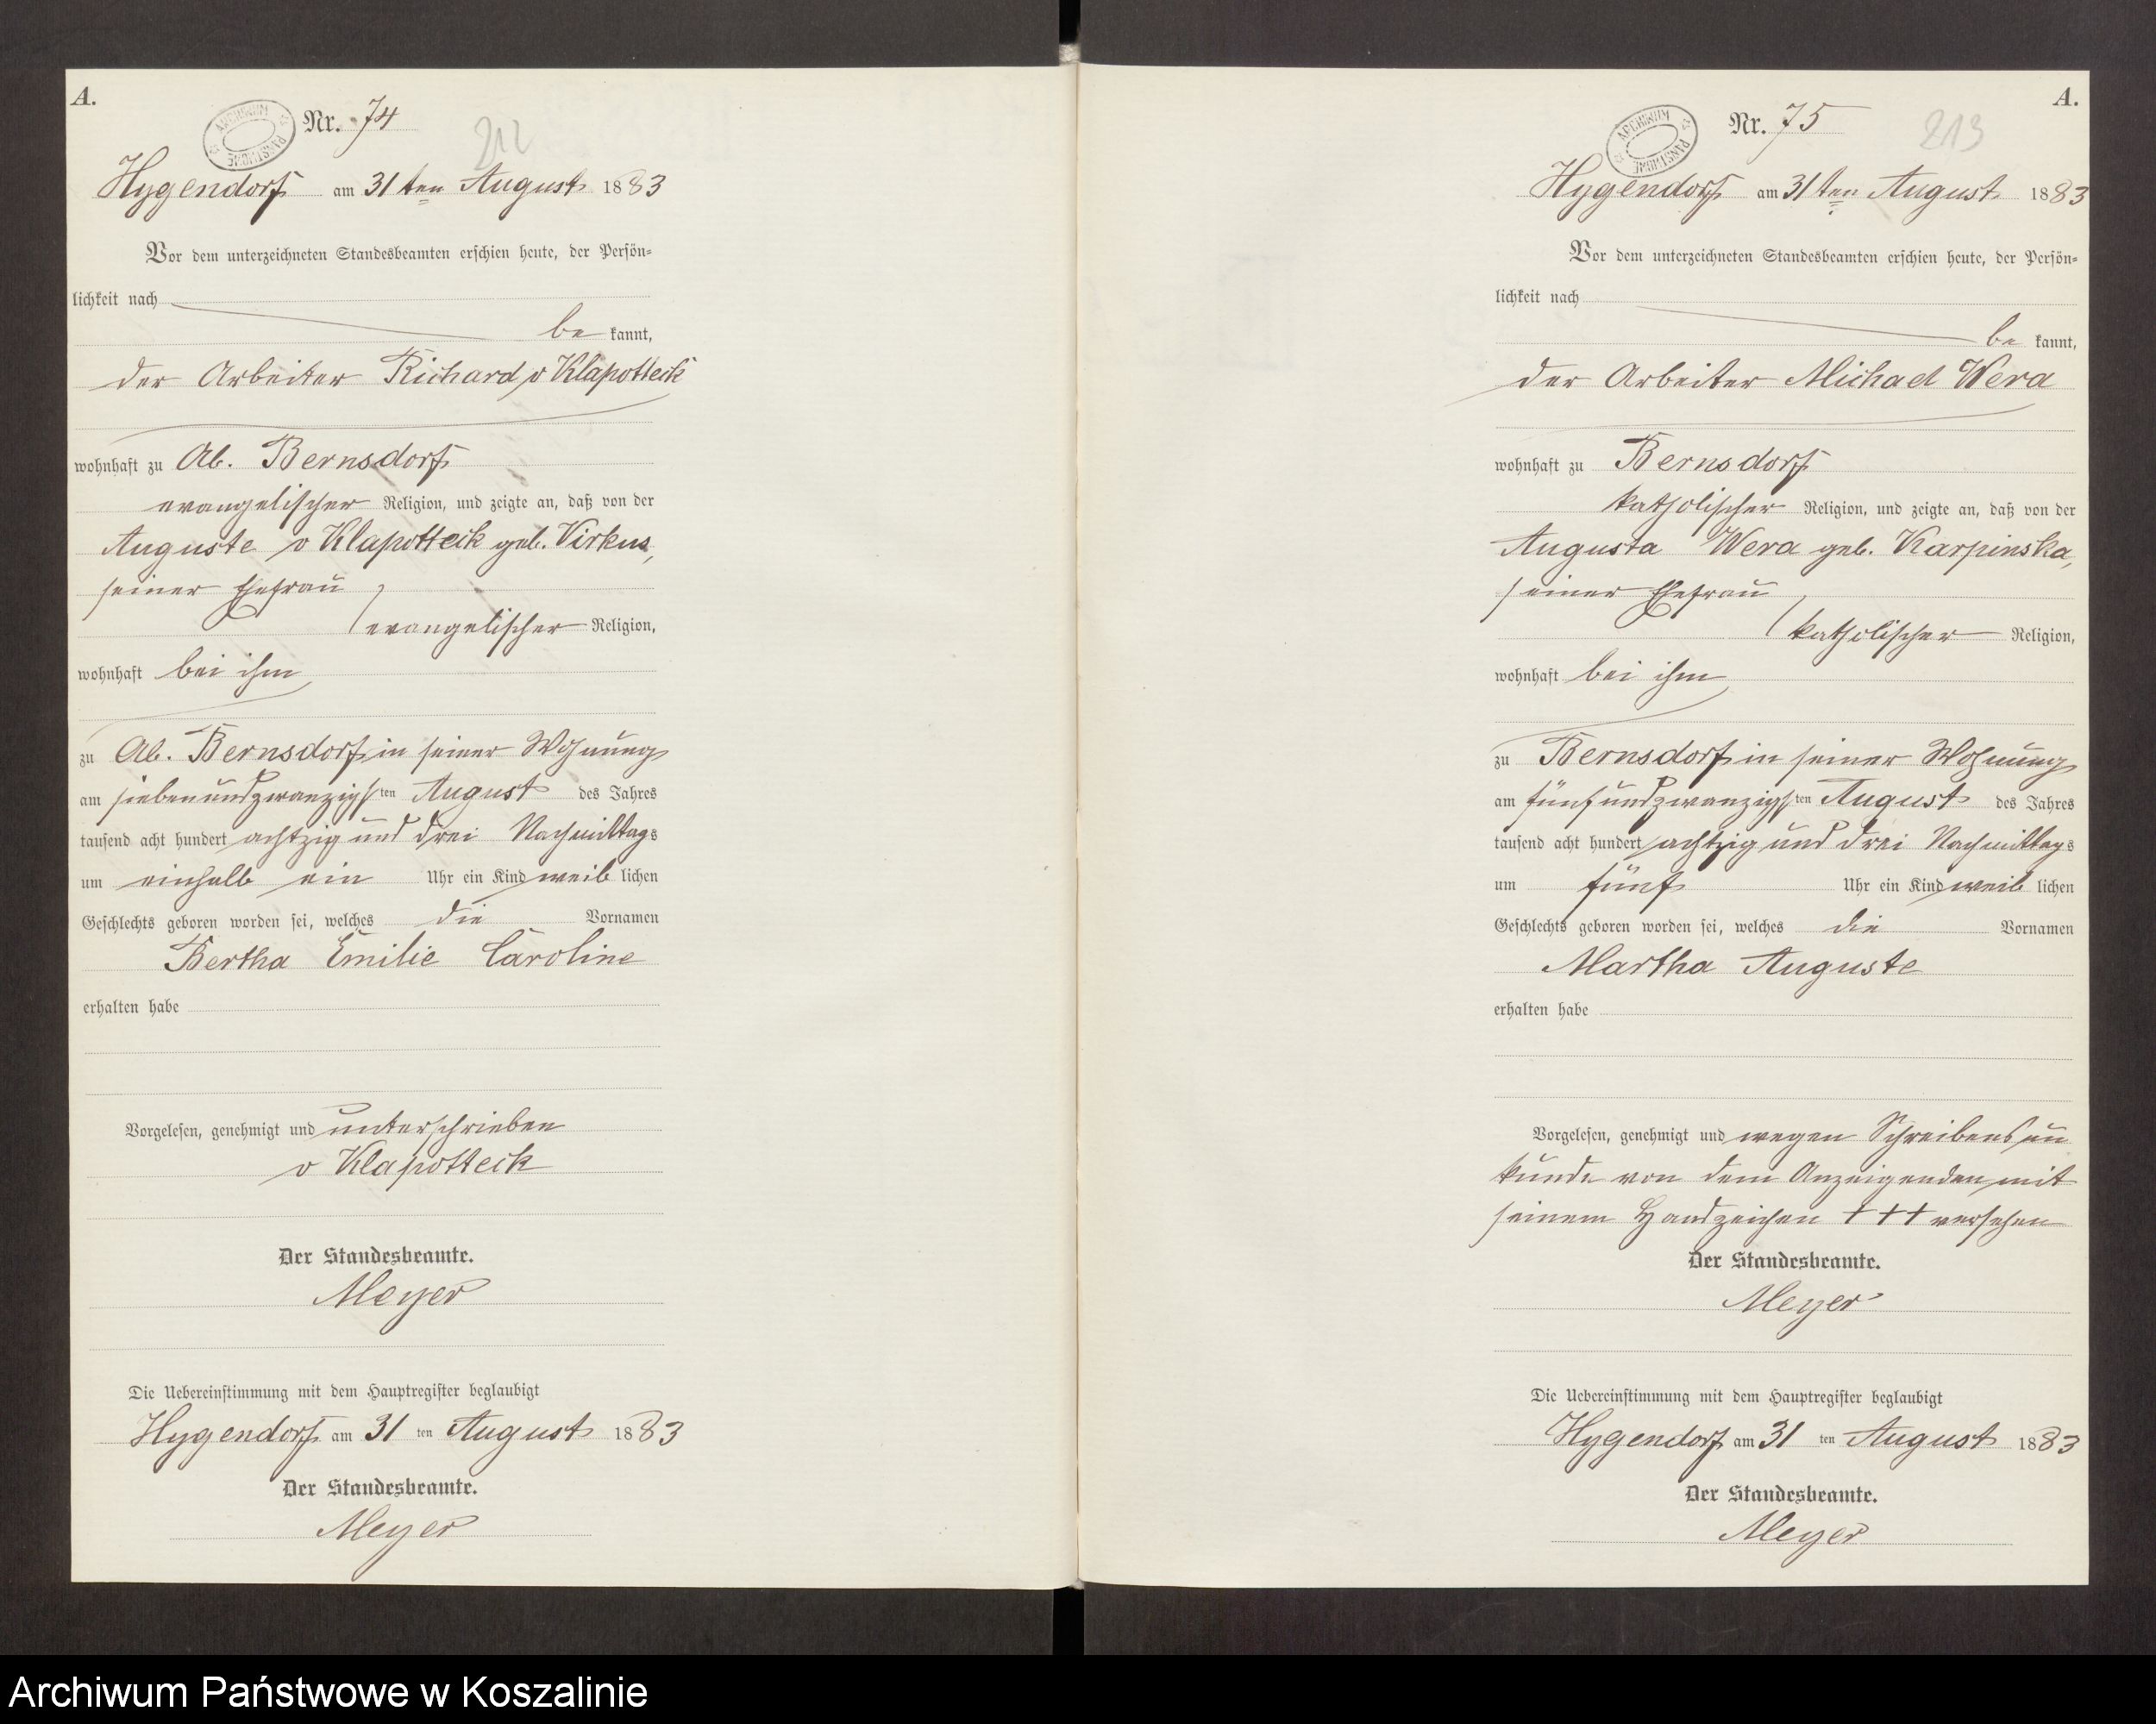 A.
ARCHIWUM PAŃSTWOWE
Nr. 74
212
Hygendorf am 31ten August 1883
Vor dem unterzeichneten Standesbeamten erschien heute, der Persön-
lichkeit nach
be kannt,
der Arbeiter Richard v Klapotteck
wohnhaft zu Ab. Bernsdorf
evangelischer Religion, und zeigte an, daß von der
Auguste v Klapotteck geb. Virkus,
seiner Ehefrau
evangelischer Religion,
wohnhaft bei ihm
zu Ab. Bernsdorf in seiner Wohnung
am siebenundzwanzigsten August des Jahres
tausend acht hundert achtzig und drei Nachmittags
um einhalb ein Uhr ein Kind weib lichen
Geschlechts geboren worden sei, welches die Vornamen
Bertha Emilie Caroline
erhalten habe
Vorgelesen, genehmigt und unterschrieben
v Klapotteck
Der Standesbeamte.
Meyer
Die Uebereinstimmung mit dem Hauptregister beglaubigt
Hygendorf am 31 ten August 1883
Der Standesbeamte.
Meyer
A.
ARCHIWUM PAŃSTWOWE
Nr. 75
213
Hygendorf am 31ten August 1883
Vor dem unterzeichneten Standesbeamten erschien heute, der Persön-
lichkeit nach
be kannt,
der Arbeiter Michael Wera
wohnhaft zu Bernsdorf
katholischer Religion, und zeigte an, daß von der
Augusta Wera geb. Karpinska,
seiner Ehefrau
katholischer Religion,
wohnhaft bei ihm
zu Bernsdorf in seiner Wohnung
am fünfundzwanzigsten August des Jahres
tausend acht hundert achtzig und drei Nachmittags
um fünf Uhr ein Kind weib lichen
Geschlechts geboren worden sei, welches die Vornamen
Martha Auguste
erhalten habe
Vorgelesen, genehmigt und wegen Schreibensun
kunde von dem Anzeigenden mit
seinem Handzeichen +++ versehen
Der Standesbeamte.
Meyer
Die Uebereinstimmung mit dem Hauptregister beglaubigt
Hygendorf am 31 ten August 1883
Der Standesbeamte.
Meyer
Archiwum Państwowe w Koszalinie